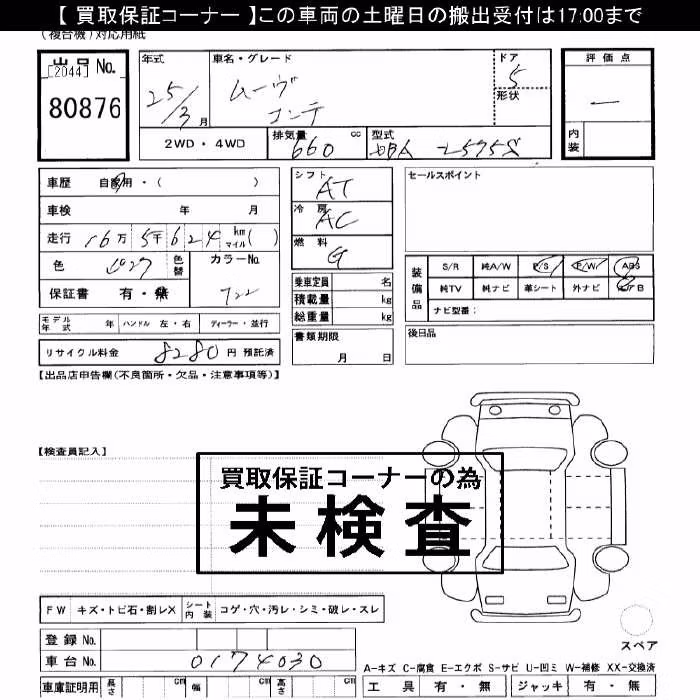 【 買取保証コーナー 】この車両の土曜日の搬出受付は17:00まで
(複合機)対応用紙
出品 No.
[2044]
80876
年式
25/3 月
車名・グレード
ムーヴ
コンテ
ドア
5
形状
評価点
—
内装
2WD・4WD
排気量
660 cc
型式
DBA L575S
車歴 自家用・( )
車検 年 月
走行 16万5千624 km マイル( )
色 色替 カラーNo.
722
保証書 有・無
モデル年式 年 ハンドル 左・右 ディーラー・並行
リサイクル料金 8280 円 預託済
シフト
AT
冷房
AC
燃料
G
乗車定員 名
積載量 kg
総重量 kg
書類期限
月 日
セールスポイント
装備品
S/R 純A/W P/S P/W ABS
純TV 純ナビ 革シート 外ナビ エアB
ナビ型番:
後日品
【出品店申告欄(不良箇所・欠品・注意事項等)】
【検査員記入】
買取保証コーナーの為
未検査
FW キズ・トビ石・割レX シート内装 コゲ・穴・汚レ・シミ・破レ・スレ
登録 No.
車台 No. 0174030
車庫証明用 長さ cm 幅 cm 高さ cm
スペア
A-キズ C-腐食 E-エクボ S-サビ U-凹ミ W-補修 XX-交換済
工具 有・無 ジャッキ 有・無